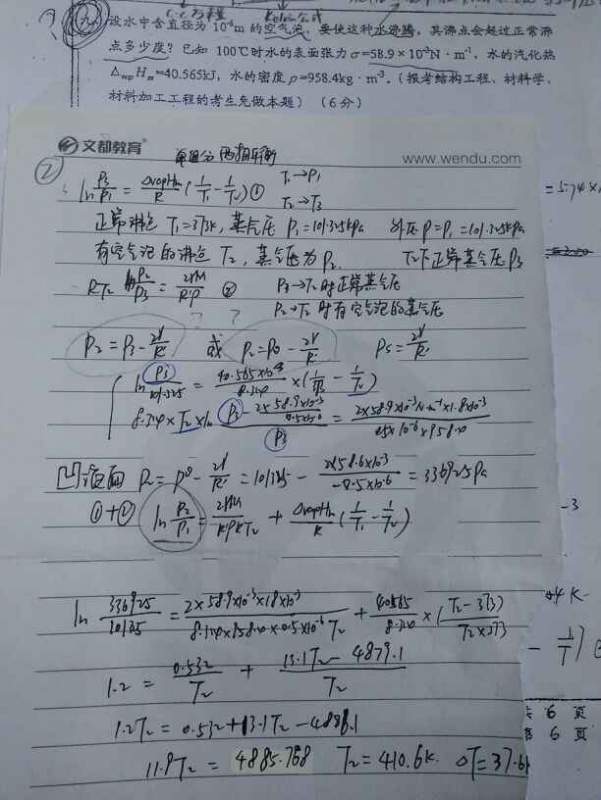 设水中含直径为10⁻⁶m的空气泡,要使这种水沸腾,其沸点会超过正常沸
点多少度?已知 100℃时水的表面张力σ=58.9×10⁻³N·m⁻¹,水的汽化热
ΔvapHm=40.565kJ,水的密度ρ=958.4kg·m⁻³。(报考结构工程、材料学、
材料加工工程的考生免做本题)(6分)
文都教育 单组分两相平衡 www.wendu.com
② ln P₃/P₁ = ΔvapHm/R (1/T₁ - 1/T₂) ① T₁→P₁
T₂→P₃
正常沸点 T₁=373K,蒸气压 P₁=101.325kPa 外压P=P₁=101.325kPa
有空气泡的沸点 T₂,蒸气压为P₂. T₂下正常蒸气压P₃
RT₂ ln P₂/P₃ = 2γM/R'ρ ② P₃→T₂时正常蒸气压
? ? P₂→T₂时有空气泡的蒸气压
P₂=P₃-2γ/R' 或 P₂=P₀-2γ/R' Ps=2γ/R'
ln P₃/101.325 = 40.565×10³/8.314 ×(1/373 - 1/T₂)
凹液面 P₂=P⁰-2γ/R'=101325-2×58.9×10⁻³/-0.5×10⁻⁶=336925Pa
①+② ln P₂/P₁ = 2γM/R'ρRT₂ + ΔvapHm/R (1/T₁ - 1/T₂)
-3
ln 336925/101325 = 2×58.9×10⁻³×18×10⁻³/8.314×958.4×0.5×10⁻⁶T₂ + 40565/8.314 ×(T₂-373)/T₂×373
1.2 = 0.532/T₂ + 13.1T₂-4879.1/T₂
1.2T₂ = 0.532+13.1T₂-4886.1
11.9T₂ = 4885.768 T₂=410.6K. ΔT=37.6K
共 6 页
第 6 页